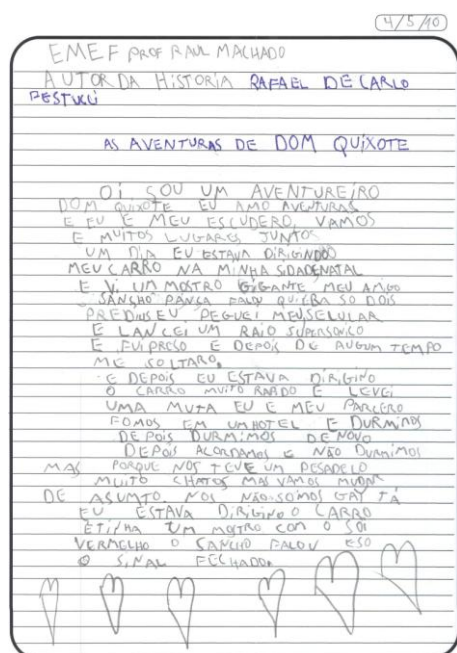 4/5/10
EMEF PROF RAUL MACHADO
AUTOR DA HISTORIA RAFAEL DE CARLO
PESTUCCI
AS AVENTURAS DE DOM QUIXOTE
OI SOU UM AVENTUREIRO
DOM QUIXOTE EU AMO AVENTURAS
E EU E MEU ESCUDERO, VAMOS
E MUITOS LUGARES JUNTOS
UM DIA EU ESTAVA DIRIGINDO
MEU CARRO NA MINHA SIDADENATAL
E VI UM MOSTRO GIGANTE MEU AMIGO
SANSHO PANÇA FALOU QUI ERA SO DOIS
PREDIUS EU, PEGUEI MEUSELULAR
E LANCEI UM RAIO SUPERSONICO
E FUI PRESO E DEPOIS DE AUGUM TEMPO
ME SOLTARO,
E DEPOIS EU ESTAVA DIRIGINO
O CARRO MUITO RAPIDO E LEVEI
UMA MUTA EU E MEU PARCERO
FOMOS EM UMHOTEL E DURMINOS
DEPOIS DURMIMOS DENOVO
DEPOIS ACORDAMOS E NÃO DURMIMOS
MAS PORQUE NOS TEVE UM PESADELO
MUITO CHATOS MAS VAMOS MUDAR
DE ASUMTO. NOS NÃO SOIMOS GAY TÁ
EU ESTAVA DIRIGINO O CARRO
ETINHA UM MOSTRO CON O SOI
VERMELHO O SANCHO FALOU ESO
O SINAL FECHADO.